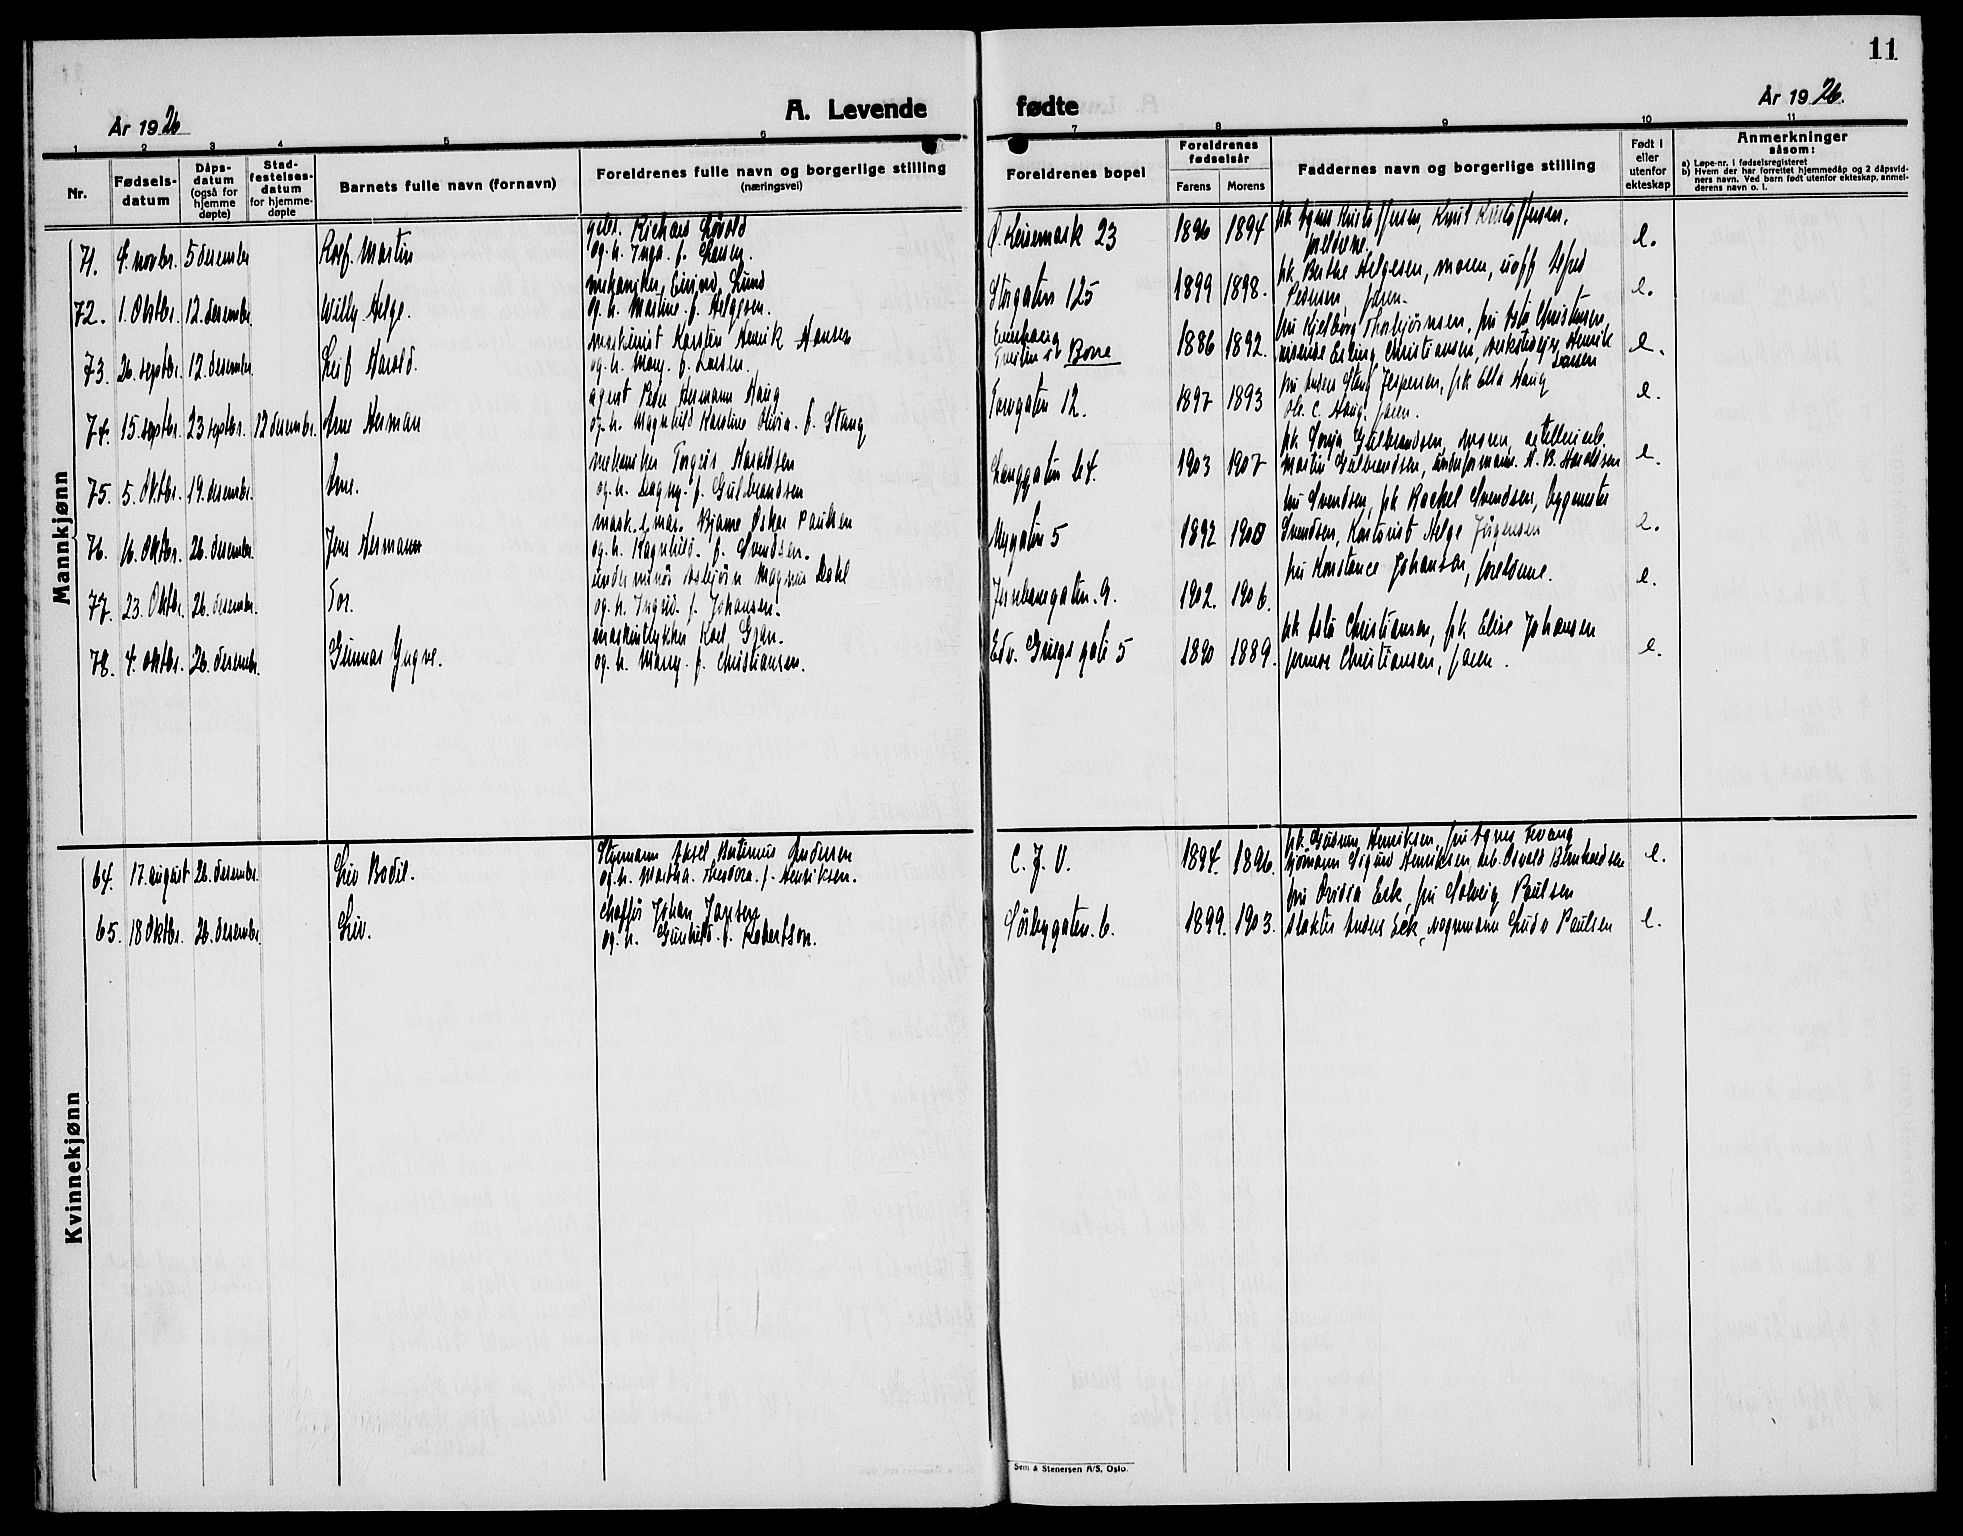 11
År 1926
A. Levende fødte
År 1926.
1 2 3 4 5 6 7 8 9 10 11
Nr.
Fødsels-
datum
Dåps-
datum
(også for
hjemme
døpte)
Stad-
festelses-
datum
for hjemme-
døpte
Barnets fulle navn (fornavn)
Foreldrenes fulle navn og borgerlige stilling
(næringsvei)
Foreldrenes bopel
Foreldrenes
fødselsår
Farens Morens
Faddernes navn og borgerlige stilling
Født i
eller
utenfor
ekteskap
Anmerkninger
såsom:
a) Løpe-nr. i fødselsregisteret
b) Hvem der har forrettet hjemmedåp og 2 dåpsvid-
ners navn. Ved barn født utenfor ekteskap, anmel-
derens navn o. l.
Mannkjønn
71. 4. novbr. 5 desember Rolf Martin
Richard
og h. Inga f. Larsen.
23 1896 1894 frk Agnes Kristoffersen, Knut Kristoffersen,
foreldrene.
e.
72. 1. Oktbr. 12. desembr. Willy Helge.
mekaniker Eivind Lund
og h. Martine f. Helgesen.
Storgaten 125 1899 1898. frk Berthe Helgesen, moren,
Pedersen, faren.
e.
73. 26. septbr. 12. desembr. Leif Harald.
maskinist Karsten Henrik Hansen
og h. Mary f. Larsen.
Borre 1886 1892. fru Thorbjørnsen, fru Asta Christensen
Erling Christiansen, Henrik
Larsen
e.
74. 15. septbr. 23 septbr. 12 desembr. Arne Herman
agent Peder Hermann Haug
og h. Magnhild Karoline Olivia f. Stang
Torvgaten 12. 1897 1893 fru Stang Jespersen, frk Ella Haug
Ole C. Haug, faren.
e.
75. 5. Oktbr. 19. desembr. Arne.
mekaniker Torgeir Haraldsen
og h. Dagny f. Gulbrandsen
Langgaten 64. 1903 1907 frk Sonja Gulbrandsen, moren,
Martin Gulbrandsen, A. B. Haraldsen
e.
76. 16. Oktbr. 26. desembr. Jens Hermann
Bjarne Oskar Paulsen
og h. Ragnhild f. Svendsen.
Nygaten 5 1892 1900 fru Svendsen, frk Rachel Svendsen, bygmester
Svendsen, Kontorist Helge Jørgensen
e.
77. 23. Oktbr. 26. desembr. Tor.
Asbjørn Magnus Dahl
og h. Ingrid f. Johansen.
Jernbanegaten 9. 1902. 1906. fru Konstance Johansen, foreldrene.
e.
78. 4. oktbr. 26. desembr. Gunnar Yngve.
Karl Gran.
og h. Mary f. Christiansen.
Edv. Griegs gate 5 1890 1889. frk Asta Christiansen, frk Elise Johansen
Christiansen, faren.
e.
Kvinnekjønn
64. 17. august 26. desembr. Liv Bodil.
Styrmann Aksel Andersen
og h. Martha Theodora f. Henriksen.
C. J. V. 1894. 1896. frk Gudrun Henriksen, fru Agnes Tevang
sjømann Sigurd Henriksen arb. Osvald Bernhardsen
e.
65. 18 Oktbr. 26. desembr. Liv.
chaffør Johan Jansen
og h. Gunhild f. Robertson.
Sørbygaten 6. 1899. 1903. fru Eek, fru Solveig Paulsen
slakter Anders Eek, Paulsen
e.
Sem & Stenersen A/S, Oslo.